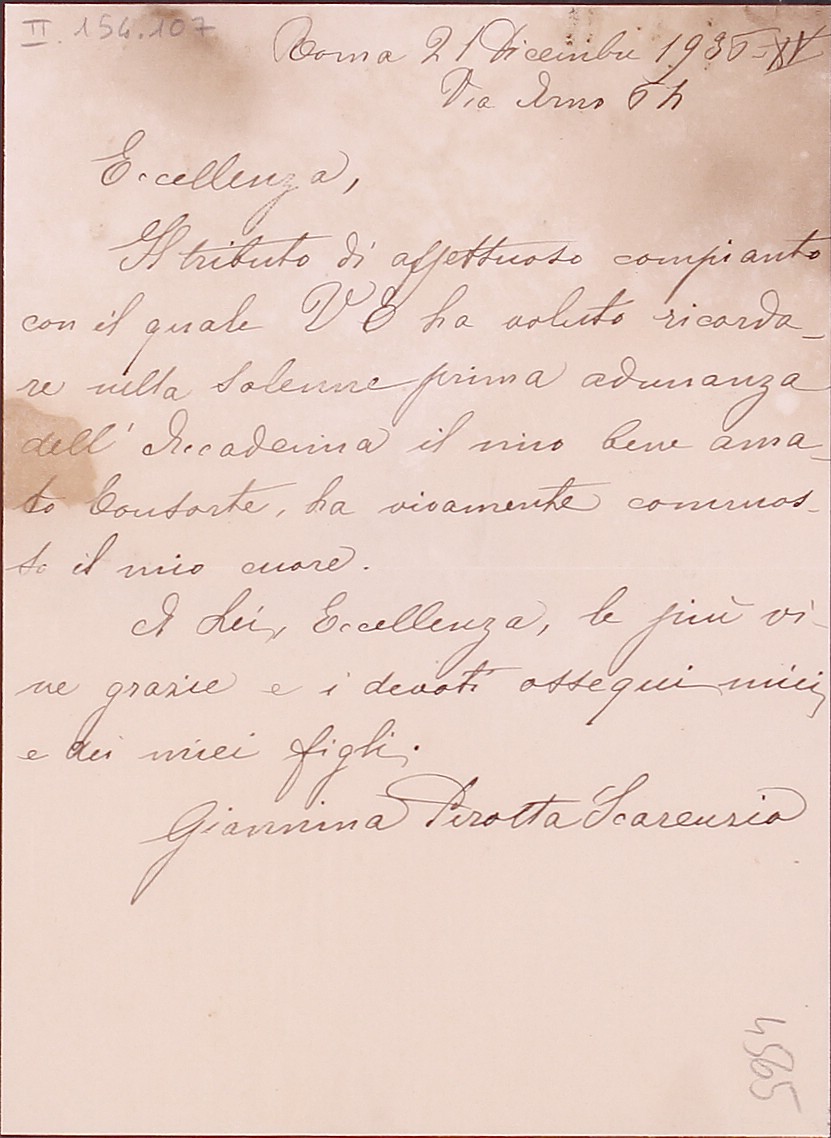 II. 154.107
Roma 21 Dicembre 1936-XV
Via Arno
Eccellenza,
Il tributo di affettuoso compianto
con il quale V E ha voluto ricorda-
re nella solenne prima adunanza
dell' Accademia il mio bene ama-
to Consorte, ha vivamente commos-
so il mio cuore.
A Lei, Eccellenza, le più vi-
ve grazie e i devoti ossequi miei
e dei miei figli.
Giannina Pirotta Scarenzio
4565